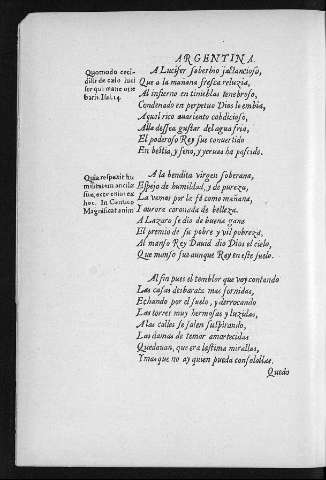 ARGENTINA.
Quomodo ceci-
disti de cœlo luci
fer qui mane orie
baris. Isai. 14.
A Lucifer soberbio jactancioso,
Que a la mañana fresca reluzia,
Al infierno en tinieblas tenebroso,
Condenado en perpetuo Dios le embia,
Aquel rico auariento cobdicioso,
Alla dessea gustar del agua fria,
El poderoso Rey fue conuertido
En bestia, y feno, y yeruas ha pascido.
Quia respexit hu
militatem ancillæ
suæ, ecce enim ex
hoc. In Cantico
Magnificat anim
A la bendita virgen soberana,
Espejo de humildad, y de pureza,
La vemos por la fè como mañana,
I aurora coronada de belleza.
A Lazaro se dio de buena gana
El premio de su pobre y vil pobreza,
Al manso Rey Dauid dio Dios el cielo,
Que manso fue aunque Rey en este suelo.
Al fin pues el temblor que voy contando
Las casas desbarata mas fornidas,
Echando por el suelo, y derrocando
Las torres muy hermosas y luzidas,
A las calles se salen suspirando,
Las damas de temor amortecidas
Quedauan, que era lastima mirallas,
Y mas que no ay quien pueda consolallas.
Quedo